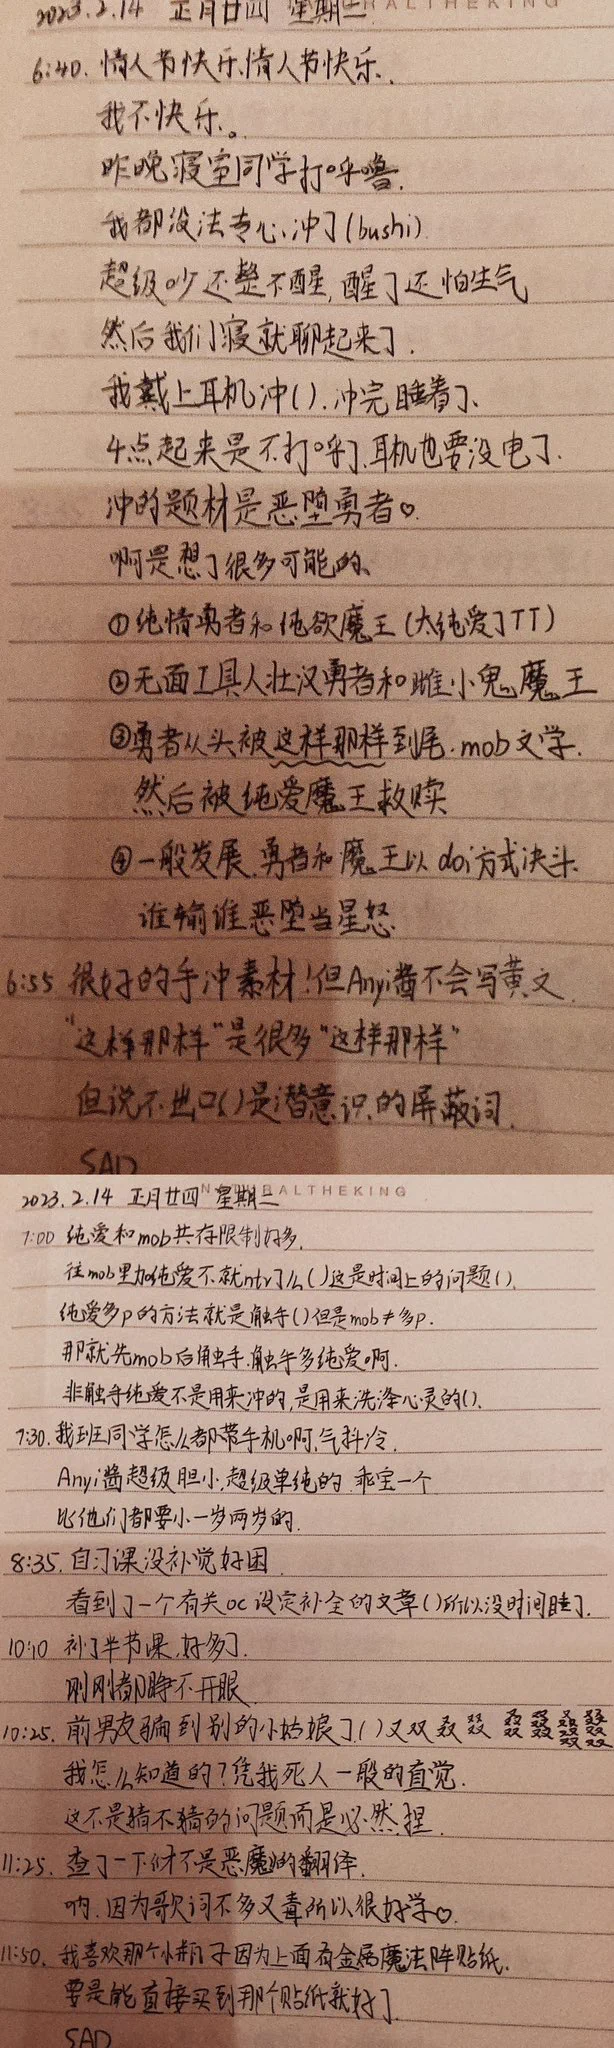 2023.2.14 正月廿四 星期二
NATURALTHEKING
6:40. 情人节快乐、情人节快乐、
我不快乐。
昨晚寝室同学打呼噜.
我都没法专心冲了(bushi)
超级吵还整不醒,醒了还怕生气
然后我们寝就聊起来了.
我戴上耳机冲().冲完睡着了、
4点起来是不打呼了、耳机也要没电了.
冲的题材是恶堕勇者♡.
啊是想了很多可能的、
①纯情勇者和纯欲魔王(太纯爱了TT)
②无面工具人壮汉勇者和雌小鬼魔王
③勇者从头被这样那样到尾.mob文学.
然后被纯爱魔王救赎
④一般发展.勇者和魔王以doi方式决斗.
谁输谁恶堕当星怒
6:55 很好的手冲素材!但Anyi酱不会写黄文.
"这样那样"是很多"这样那样"
但说不出口()是潜意识的屏蔽词.
SAD
NATURALTHEKING
2023.2.14 正月廿四 星期二
7:00 纯爱和mob共存限制好多.
往mob里加纯爱不就ntr了么()这是时间上的问题().
纯爱多p的方法就是触手()但是mob≠多p.
那就先mob后触手.触手多纯爱啊.
非触手纯爱不是用来冲的,是用来洗涤心灵的().
7:30. 我班同学怎么都带手机啊,气抖冷.
Anyi酱超级胆小,超级单纯的 乖宝一个
比他们都要小一岁两岁的.
8:35. 自习课没补觉好困.
看到了一个有关oc设定补全的文章()所以没时间睡了.
10:10 补了半节课,好多了.
刚刚都睁不开眼
10:25. 前男友骗到别的小姑娘了()又双叒叕
我怎么知道的?凭我死人一般的直觉.
这不是猜不猜的问题而是必然捏.
11:25. 查了一下才不是恶魔的翻译.
呐.因为歌词不多又毒所以很好学♡.
11:50. 我喜欢那个小瓶子因为上面有金属魔法阵贴纸.
要是能直接买到那个贴纸就好了.
SAD